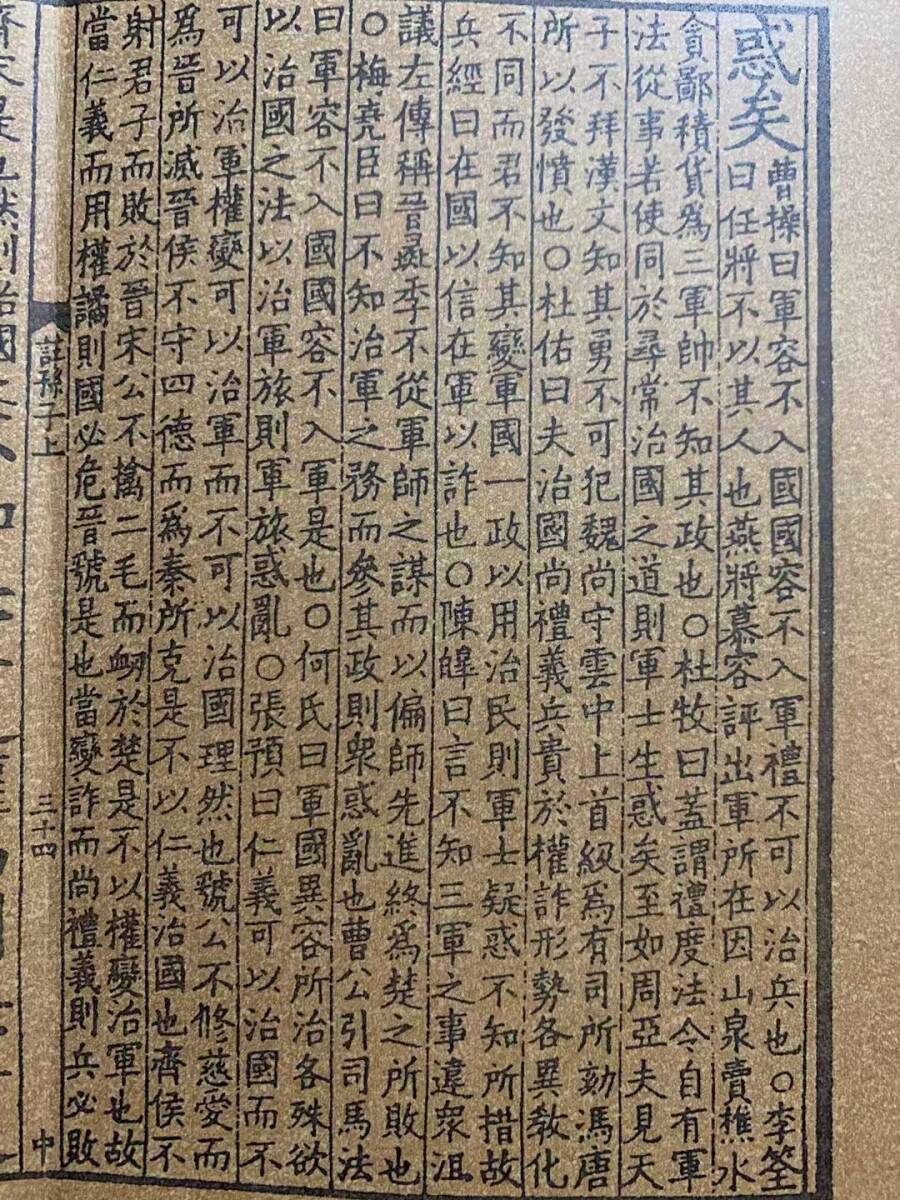 惑矣
曹操曰軍容不入國國容不入軍禮不可以治兵也○李筌
曰任將不以其人也燕將慕容評出軍所在因山泉賣樵水
貪鄙積貨爲三軍帥不知其政也○杜牧曰蓋謂禮度法令自有軍
法從事若使同於尋常治國之道則軍士生惑矣至如周亞夫見天
子不拜漢文知其勇不可犯魏尚守雲中上首級爲有司所劾馮唐
所以發憤也○杜佑曰夫治國尚禮義兵貴於權詐形勢各異教化
不同而君不知其變軍國一政以用治民則軍士疑惑不知所措故
兵經曰在國以信在軍以詐也○陳皥曰言不知三軍之事違衆沮
議左傳稱晉彘季不從軍師之謀而以偏師先進終爲楚之所敗也
○梅堯臣曰不知治軍之務而參其政則衆惑亂也曹公引司馬法
曰軍容不入國國容不入軍是也○何氏曰軍國異容所治各殊欲
以治國之法以治軍旅則軍旅惑亂○張預曰仁義可以治國而不
可以治軍權變可以治軍而不可以治國理然也虢公不修慈愛而
爲晉所滅晉侯不守四德而爲秦所克是不以仁義治國也齊侯不
射君子而敗於晉宋公不擒二毛而衂於楚是不以權變治軍也故
當仁義而用權譎則國必危晉虢是也當變詐而尚禮義則兵必敗
註孫子上 三十四 中